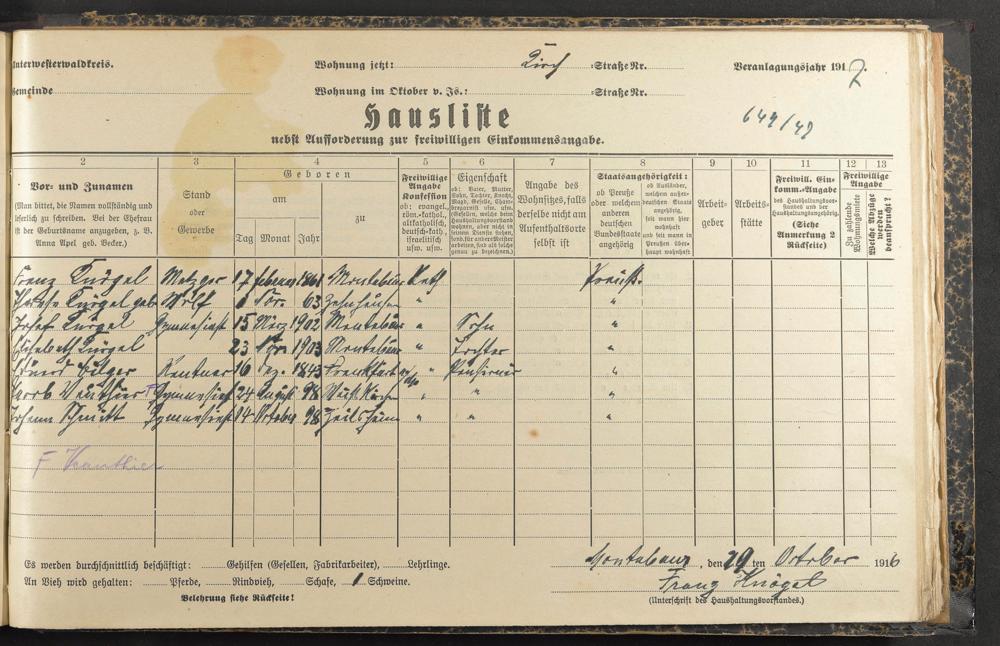 Unterwesterwaldkreis. Wohnung jetzt: Kirch =Straße Nr. Veranlagungsjahr 1917.
Gemeinde Wohnung im Oktober v. Js.: =Straße Nr.
Hausliste 642/42
nebst Aufforderung zur freiwilligen Einkommensangabe.
2 3 4 5 6 7 8 9 10 11 12 13
Vor- und Zunamen
(Man bittet, die Namen vollständig und
leserlich zu schreiben. Bei der Ehefrau
ist der Geburtsname anzugeben, z. B.
Anna Apel geb. Becker.)
Stand
oder
Gewerbe
Geboren
am
Tag Monat Jahr
zu
Freiwillige
Angabe
Konfession
ob: evangel.,
röm.-kathol.,
altkatholisch,
deutsch-kath.,
israelitisch
usw. usw.
Eigenschaft
ob: Vater, Mutter,
Sohn, Tochter, Knecht,
Magd, Geselle, Cham-
bregarnist usw. usw.
(Gesellen, welche beim
Haushaltungsvorstand
wohnen, aber nicht in
seinem Dienste stehen,
sind als solche
genau zu bezeichnen.)
Angabe des
Wohnsitzes, falls
derselbe nicht am
Aufenthaltsorte
selbst ist
Staatsangehörigkeit:
ob Preuße
oder welchem
anderen
deutschen
Bundesstaate
angehörig
ob Ausländer,
welchem außer-
deutschen Staate
angehörig,
seit wann hier
wohnhaft
und seit wann in
Preußen über-
haupt wohnhaft
Arbeit-
geber
Arbeits-
stätte
Freiwill. Ein-
komm.-Angabe
des Haushaltungsvor-
standes und der
Haushaltungsangehörig.
(Siehe
Anmerkung 2
Rückseite)
Freiwillige
Angabe
Zu zahlende
Wohnungsmiete
Welche Abzüge
werden
beansprucht?
Franz Knögel Metzger 17 Februar 1861 Montabaur Kath Preuß.
Knögel geb. Wolf 1 Nov. 63 " "
Josef Knögel Gymnasiast 15 März 1902 Montabaur " Sohn "
Elisabeth Knögel 23 Nov. 1903 Montabaur " Tochter "
Eduard Hilger Rentner 16 Dez. 1843 Frankfurt " Pensionär "
Jakob Gymnasiast 24 August 98 " " "
Johann Schmitt Gymnasiast 14 Oktober 98 Zeilsheim " " "
Es werden durchschnittlich beschäftigt: Gehilfen (Gesellen, Fabrikarbeiter), Lehrlinge.
An Vieh wird gehalten: Pferde, Rindvieh, Schafe, 1 Schweine.
Belehrung siehe Rückseite!
Montabaur, den 29 ten October 1916
Franz Knögel
(Unterschrift des Haushaltungsvorstandes.)